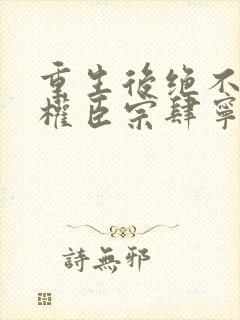 重生後绝不
權臣宗肆寧
詩無邪